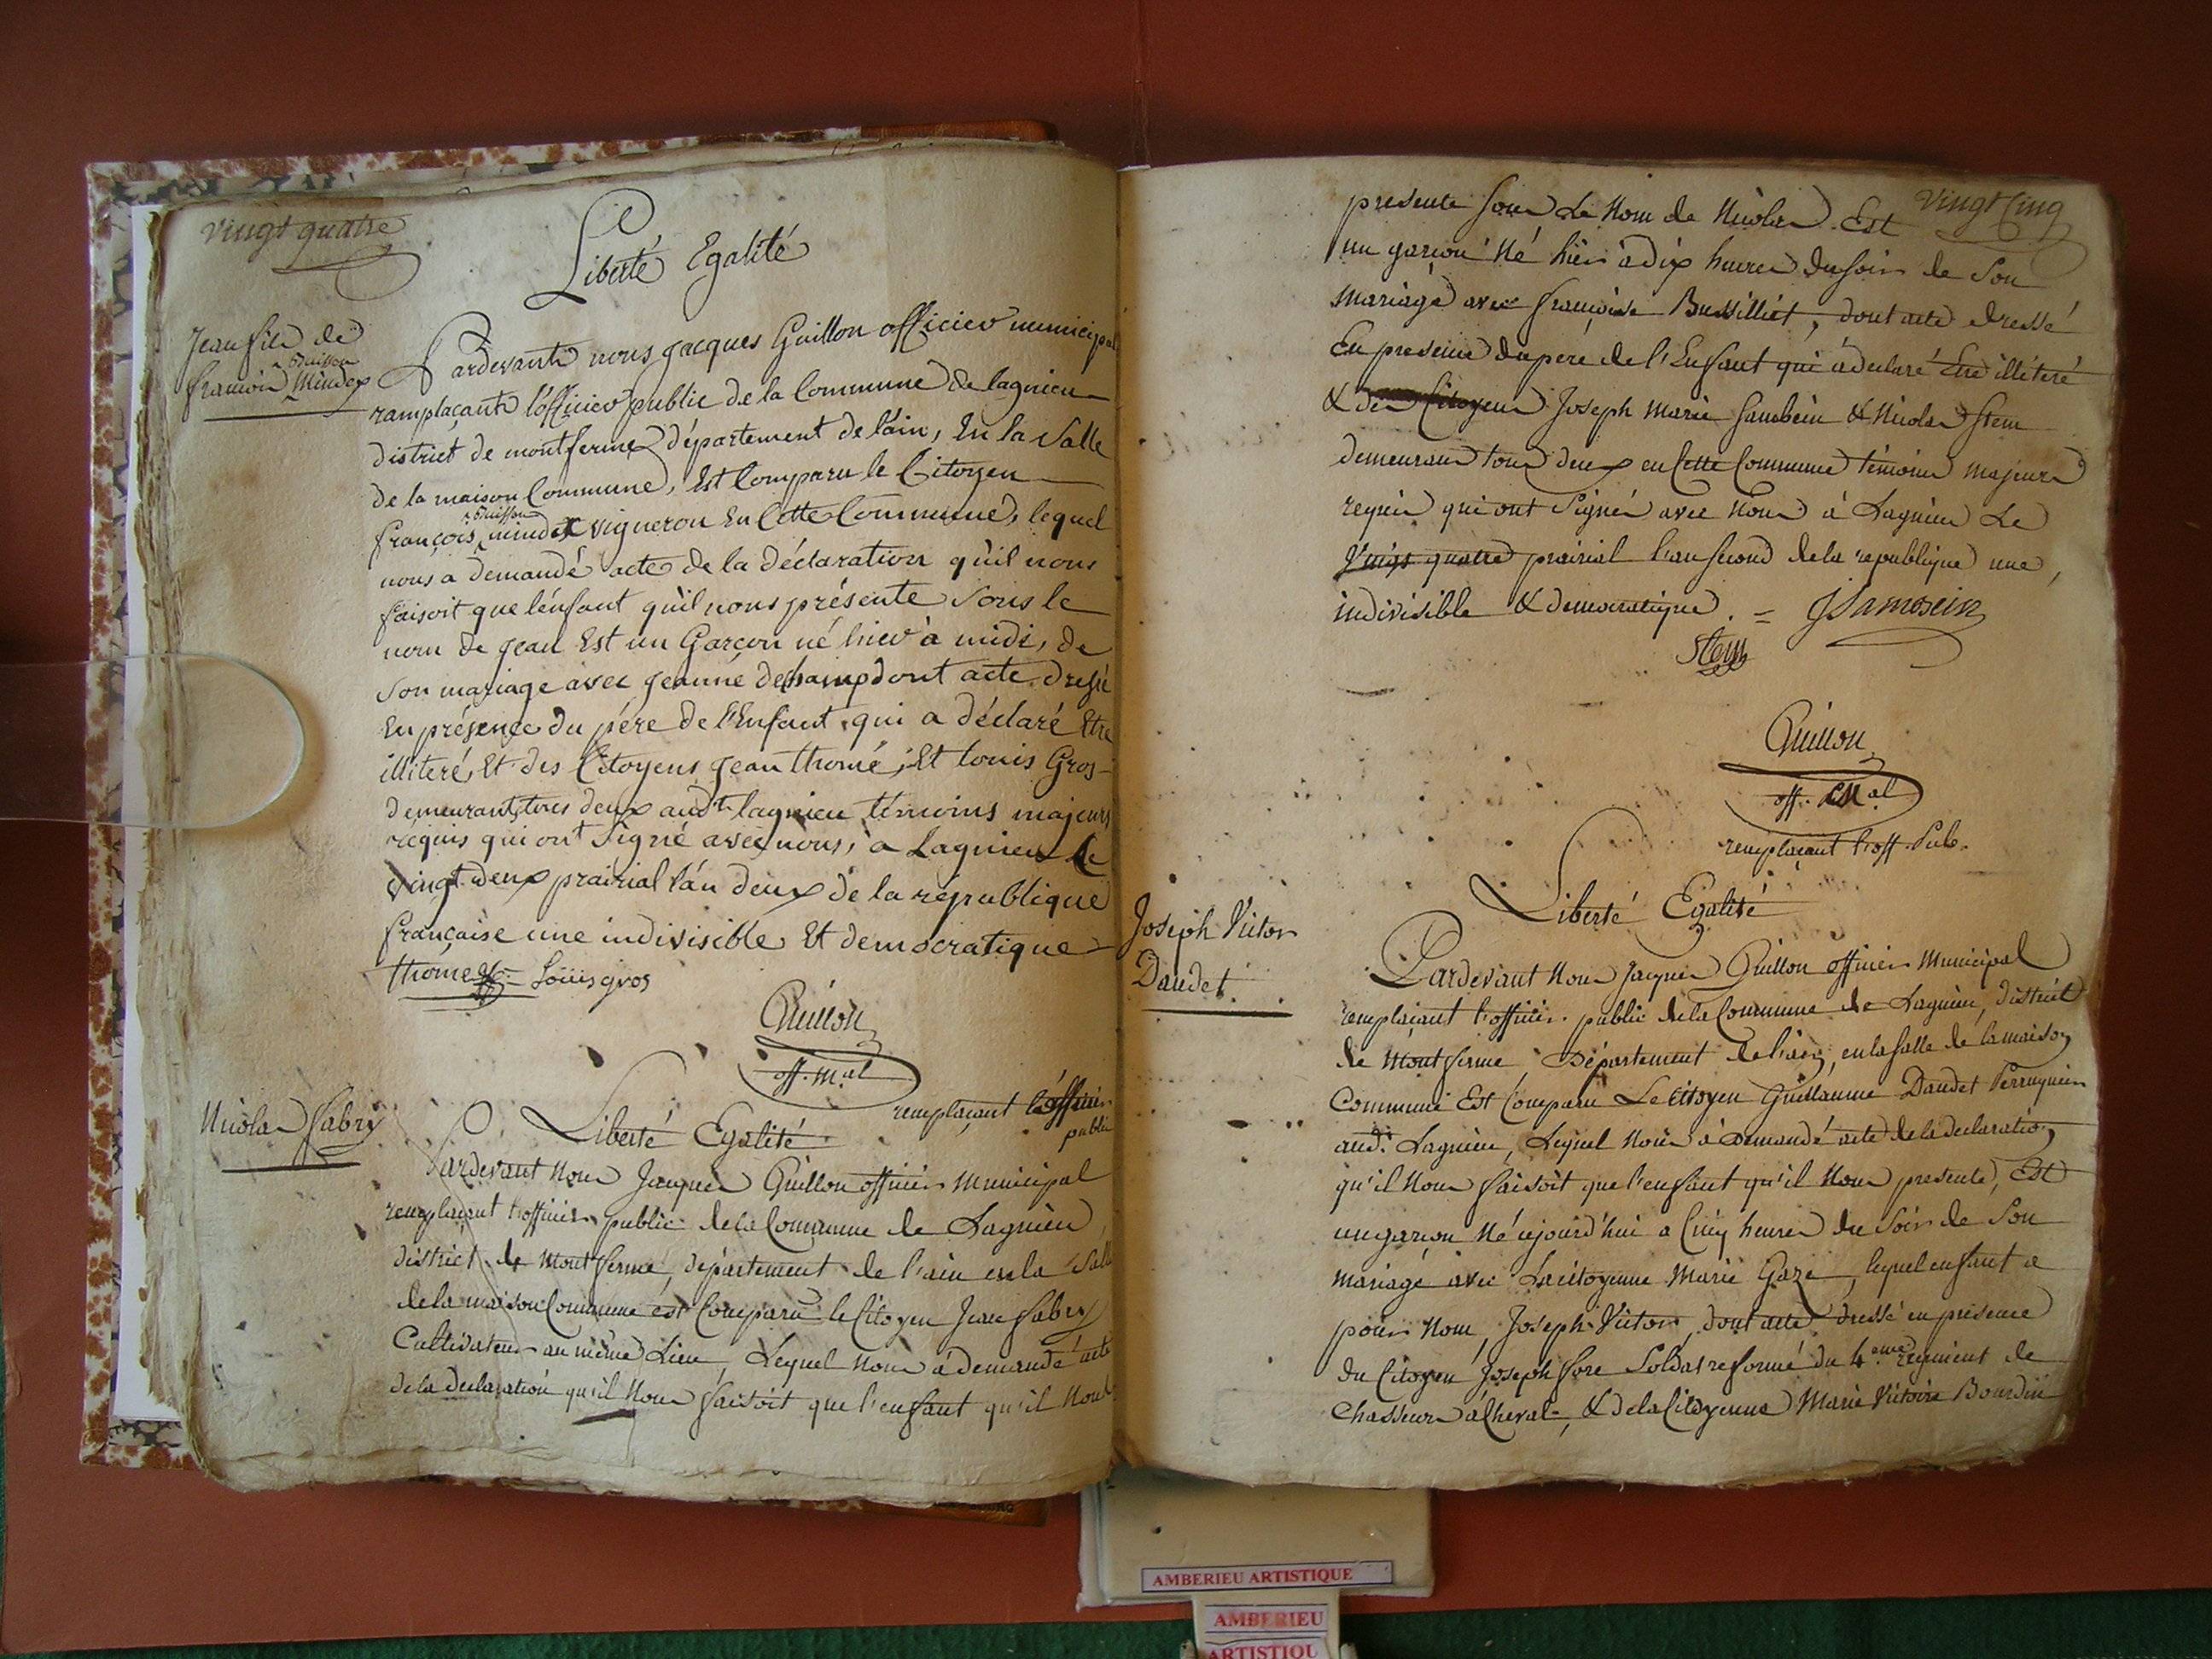 vingt quatre
Liberté Egalité
Jean fils de
Buisson
francois Mindex
Pardevant nous jacques Guillon officier municipal
ramplaçant l'officier public de la Commune de lagnieu
district de montferme département de l'ain, En la Salle
de la maison Commune, Est Comparu le Citoyen
Buisson
françois mindex vigneron En Cette Commune, lequel
nous a demandé acte de la déclaration qu'il nous
faisoit que l'enfant qu'il nous présente Sous le
nom de jean Est un Garçon né hier à midi, de
Son mariage avec jeanne dechamp dont acte dressé
En présence du père de l'Enfant qui a déclaré Etre
illiteré, Et des Citoyens jean thomé, Et louis Gros
demeurants tous deux audt lagnieu témoins majeurs
requis qui ont Signé avec nous, à Lagnieu Le
vingt deux prairial l'an deux de la republique
française une indivisible Et democratique
thome Loüis gros
Guillon
off. m.al
remplaçant l'officier
public
Nicolas fabry
Liberté Egalité
Pardevant Nous Jacques Guillon officier Municipal
remplaçant l'officier public de la Commune de Lagnieu
district de Montferme, département de l'ain en la Salle
de la maison Commune est Comparu le Citoyen Jean fabry
Cultivateur au même Lieu, Lequel Nous à demandé acte
de la declaration qu'il Nous faisoit que l'enfant qu'il Nous
vingt Cinq
presente sous Le Nom de Nicolas Est
un garcon Né hier à dix heures du soir de Son
Mariage avec françoise Bussilliet, dont acte dressé
En presence du pere de l'Enfant qui à declaré Etre illiteré
& des Citoyens Joseph Marie & Nicolas Stem
demeurans tous deux en Cette Commune témoins Majeurs
requis qui ont Signés avec Nous à Lagnieu Le
Vingt quatre prairial l'an second de la republique une,
indivisible & democratique. =
Stem
Guillon
off. M.al
remplaçant l'off. Pub.
Liberté Egalité
Joseph Victor
Daudet
Pardevant Nous Jacques Guillon officier Municipal
remplaçant l'officier public de la Commune de Lagnieu, district
de Montferme, Département de l'ain, en la salle de la maison
Commune Est Comparu Le Citoyen Guillaume Daudet Perruquier
audt. Lagnieu, Lequel Nous à demandé acte de la declaration
qu'il Nous faisoit que l'enfant qu'il Nous presente, Est
un garcon Né aujourd'hui a Cinq heures du Soir de Son
mariage avec La citoyenne Marie Gaze, lequel enfant a
pour Nom, Joseph Victor, dont acte dressé en presence
du Citoyen Joseph fore Soldat reformé du 4eme regiment de
Chasseurs à Cheval, & de la Citoyenne Marie Victoire Bourdin
AMBERIEU ARTISTIQUE
AMBERIEU
ARTISTIQU